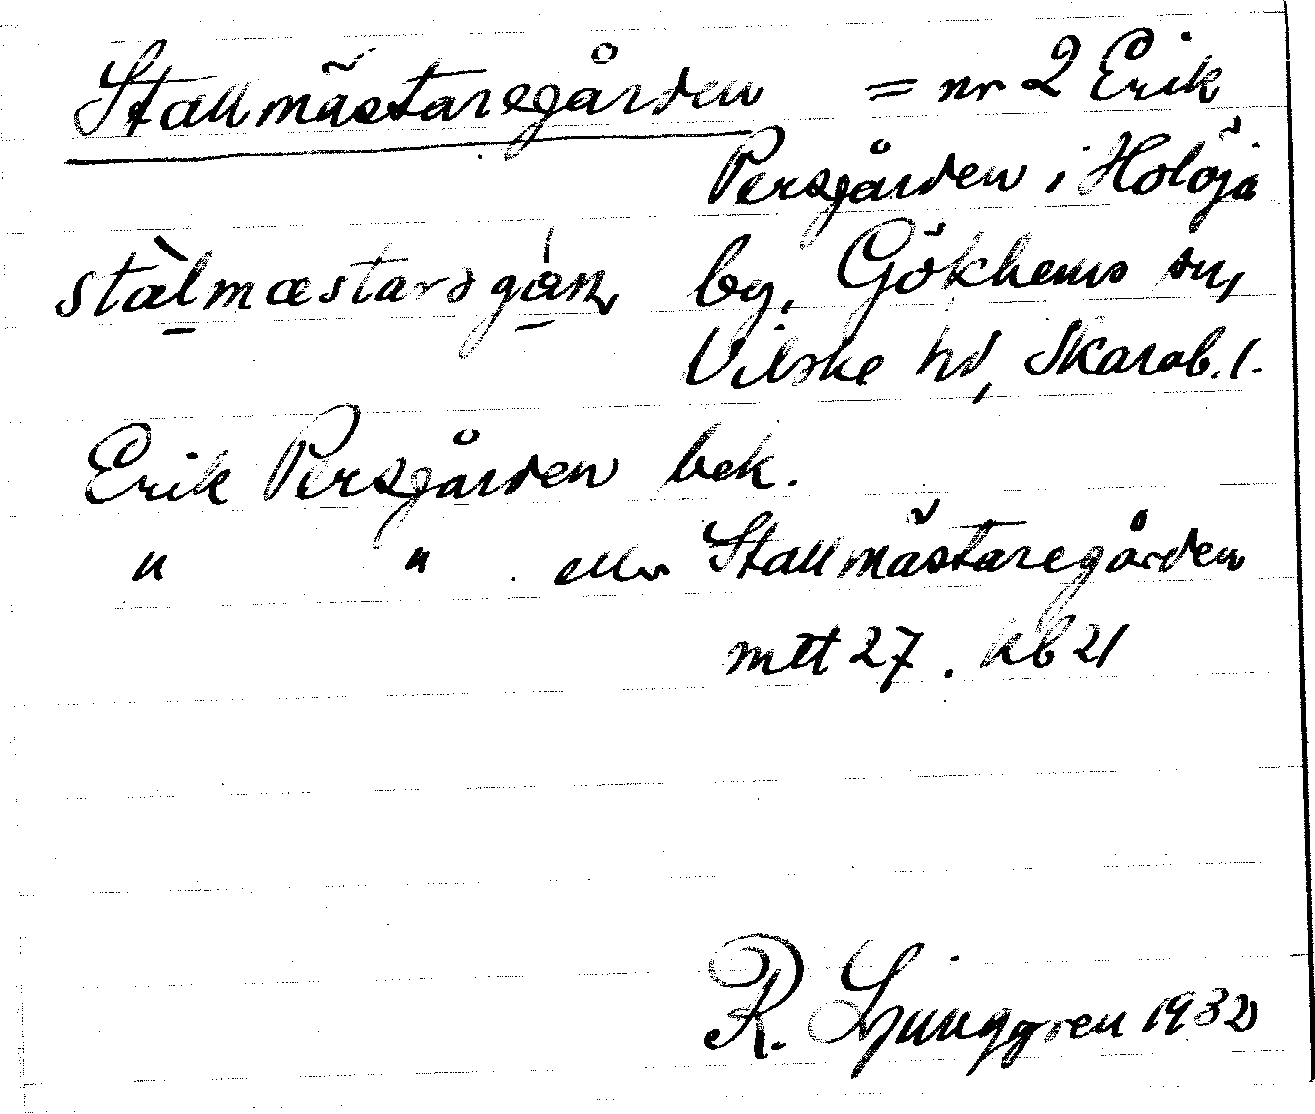 Stallmästaregården = nr 2 Erik
Persgården i Holöja
stàlmæstarəgán by, Gökhems sn,
Vilske hd, Skarab. l.
Erik Persgården bek.
" " eller Stallmästaregården
mtt 27. kb 21
R. Ljunggren 1932